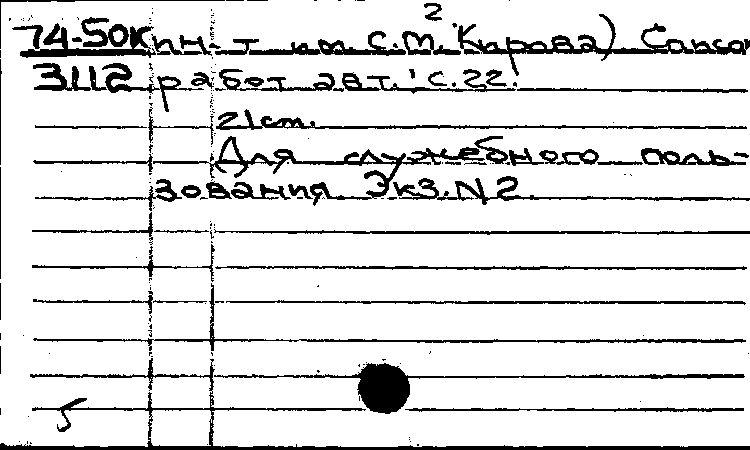 2
74-50к ин-т им. С.М. Кирова) Список
3112 работ авт.: с.22.
21см.
Для служебного поль-
зования. Экз.N2.
5